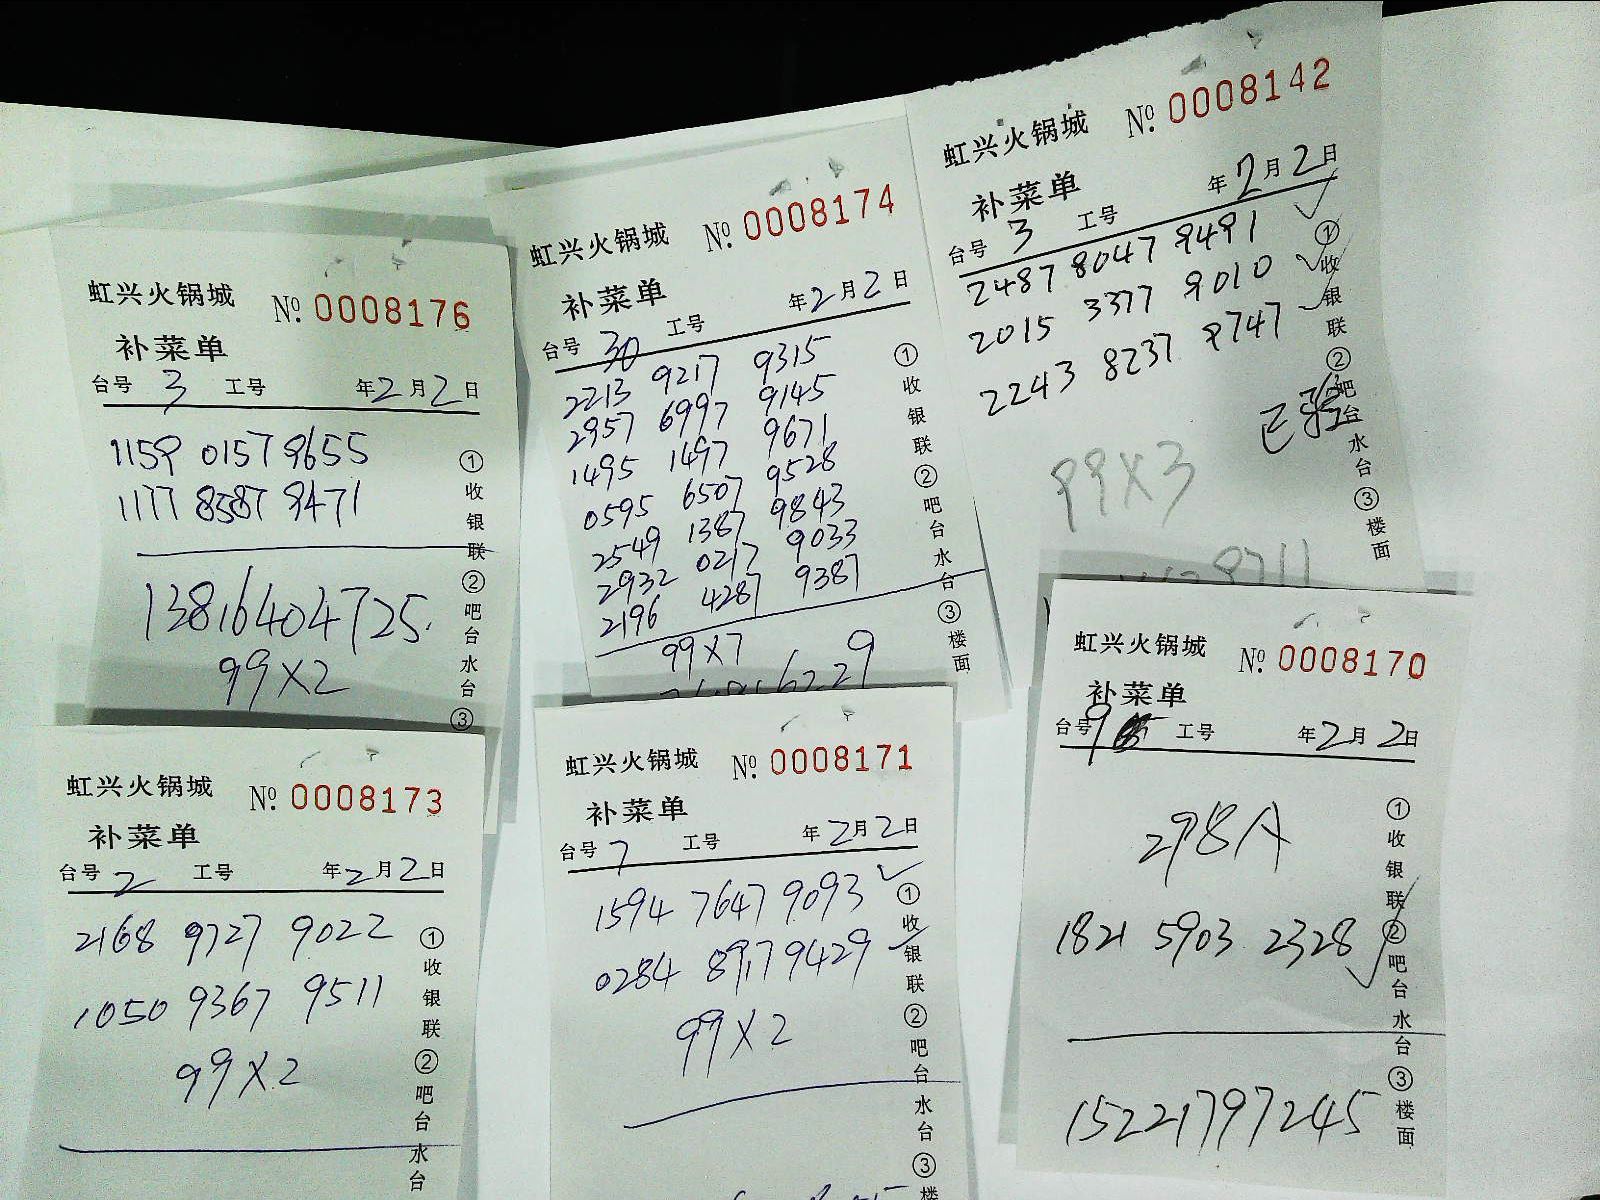 虹兴火锅城 № 0008176
补菜单
台号 3 工号 年 2 月 2 日
1159 0157 9655
1177 8587 9471
13816404725
99×2
①收银联②吧台水台③
虹兴火锅城 № 0008174
补菜单
台号 30 工号 年 2 月 2 日
2213 9217 9315
2957 6997 9145
1495 1497 9671
0595 6507 9528
2549 1387 9843
2932 0217 9033
2196 4287 9387
99×7
①收银联②吧台水台③楼面
虹兴火锅城 № 0008142
补菜单
台号 3 工号 年 2 月 2 日
2487 8047 9491
2015 3377 9010
2243 8237 9747
已验
99×3
9711
①收银联②吧台水台③楼面
虹兴火锅城 № 0008173
补菜单
台号 2 工号 年 2 月 2 日
2168 9727 9022
1050 9367 9511
99×2
①收银联②吧台水台
虹兴火锅城 № 0008171
补菜单
台号 7 工号 年 2 月 2 日
1594 7647 9093
0284 8917 9429
99×2
①收银联②吧台水台③楼
虹兴火锅城 № 0008170
补菜单
台号 9 工号 年 2 月 2 日
298A
1821 5903 2328
15221797245
①收银联②吧台水台③楼面